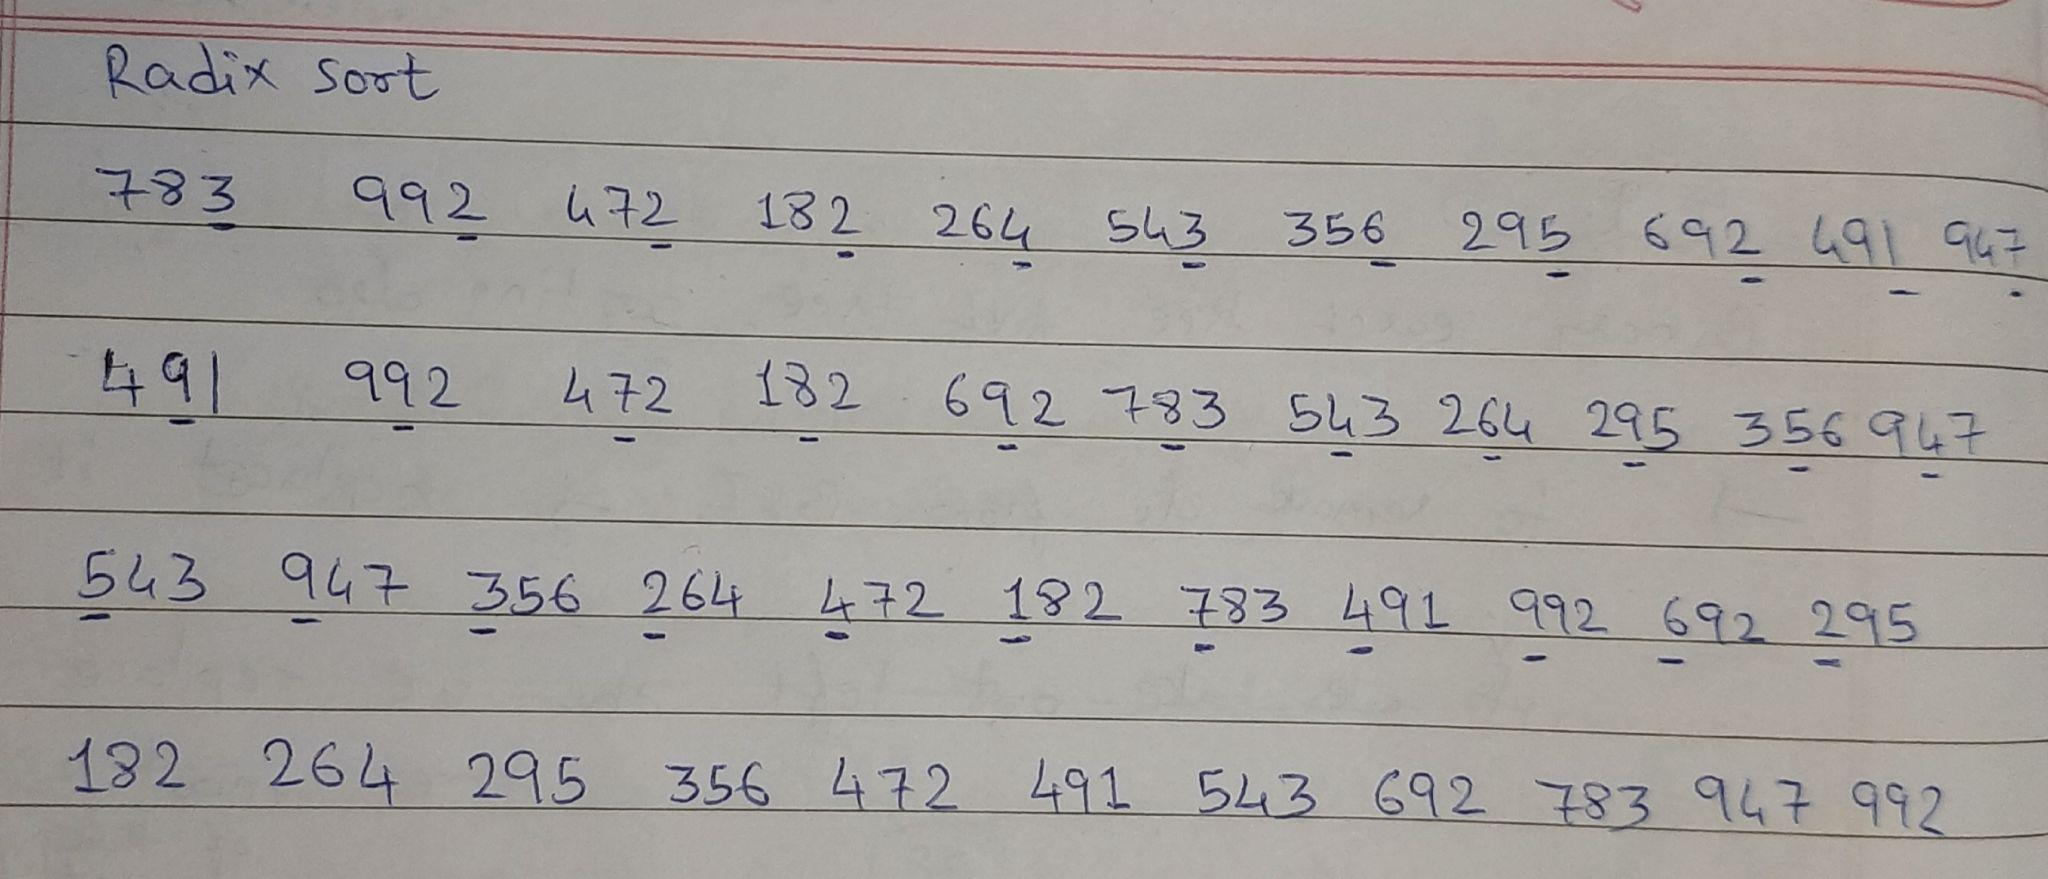 Radix sort
783 992 472 182 264 543 356 295 692 491 947
491 992 472 182 692 783 543 264 295 356 947
543 947 356 264 472 182 783 491 992 692 295
182 264 295 356 472 491 543 692 783 947 992